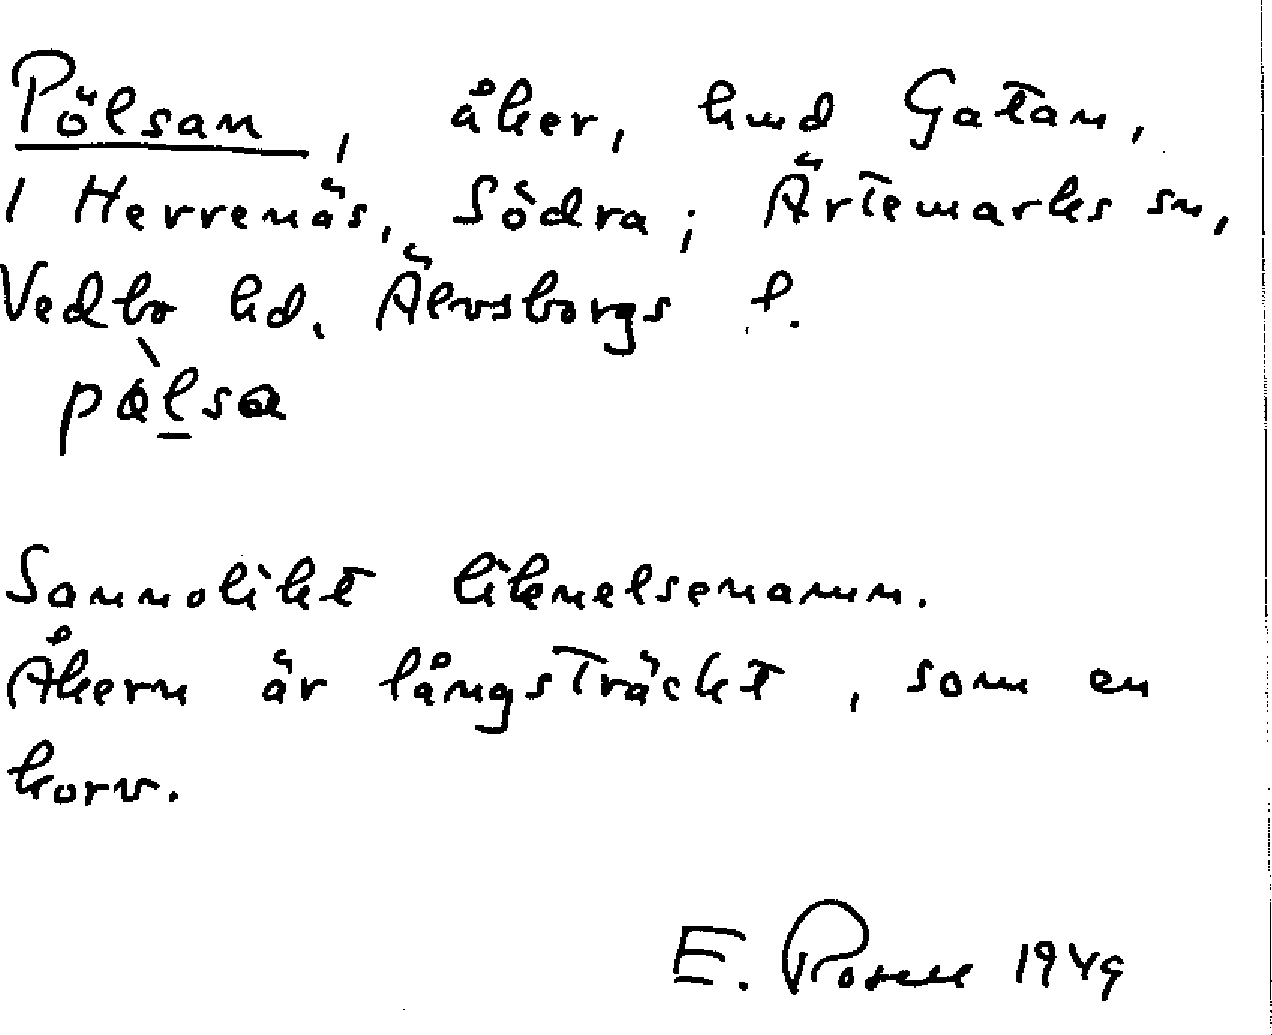 Pölsan, åker, hmd Gatan,
1 Herrenäs, Södra; Ärtemarks sn,
Vedbo hd. Älvsborgs l.
pö̀l̲sa
Sannolikt liknelsenamn.
Åkern är långsträckt, som en
korv.
E. Rosell 1949